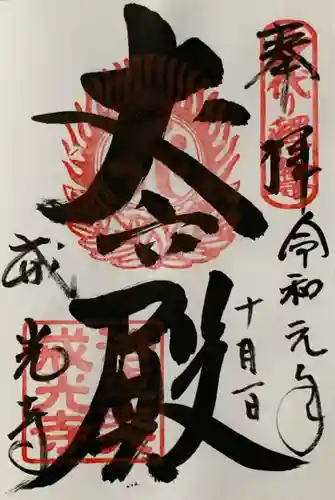 奉拝
令和元年
十月一日
丈六殿
成光寺
成光寺